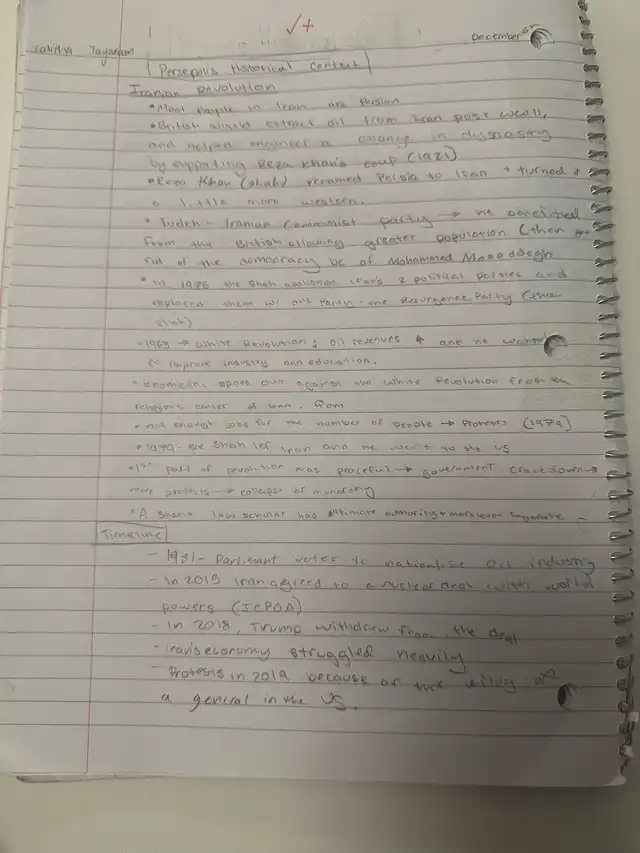 ✓+
December
Jayaram
Persepolis Historical Context
Iranian Revolution
• Most people in Iran are Persian
• British extract oil from Iran post WWII,
and helped engineer a change in dynasty
by supporting Reza Khan's coup (1921)
• Reza Khan (shah) renamed Persia to Iran + turned it
a little more western.
• Tudeh - Iranian Communist party → he
from the British allowing greater population (then
rid of the democracy bc of Mohammed
• In the Shah abolished Iran's 2 political parties and
replaced them w/ one Party - the Resurgence Party
shah)
• 1963 → White Revolution; oil revenues and he wanted
to improve industry and education.
• spoke out against the White Revolution from
religious center of Iran. Qom
• not enough jobs for the number of people → protests (1979)
• 1979 - the Shah lef Iran and he went to the US
• 1st part of revolution was peaceful → government crackdown →
more protests → collapse of monarchy
• A Sharia law scholar has ultimate authority +
Timeline
- votes to nationalise oil industry
- In 2015 Iran agreed to a nuclear deal with world
powers
- In 2018, Trump withdrew from the deal
- economy struggled heavily
- Protests in 2019 because of the of
a general in the US.